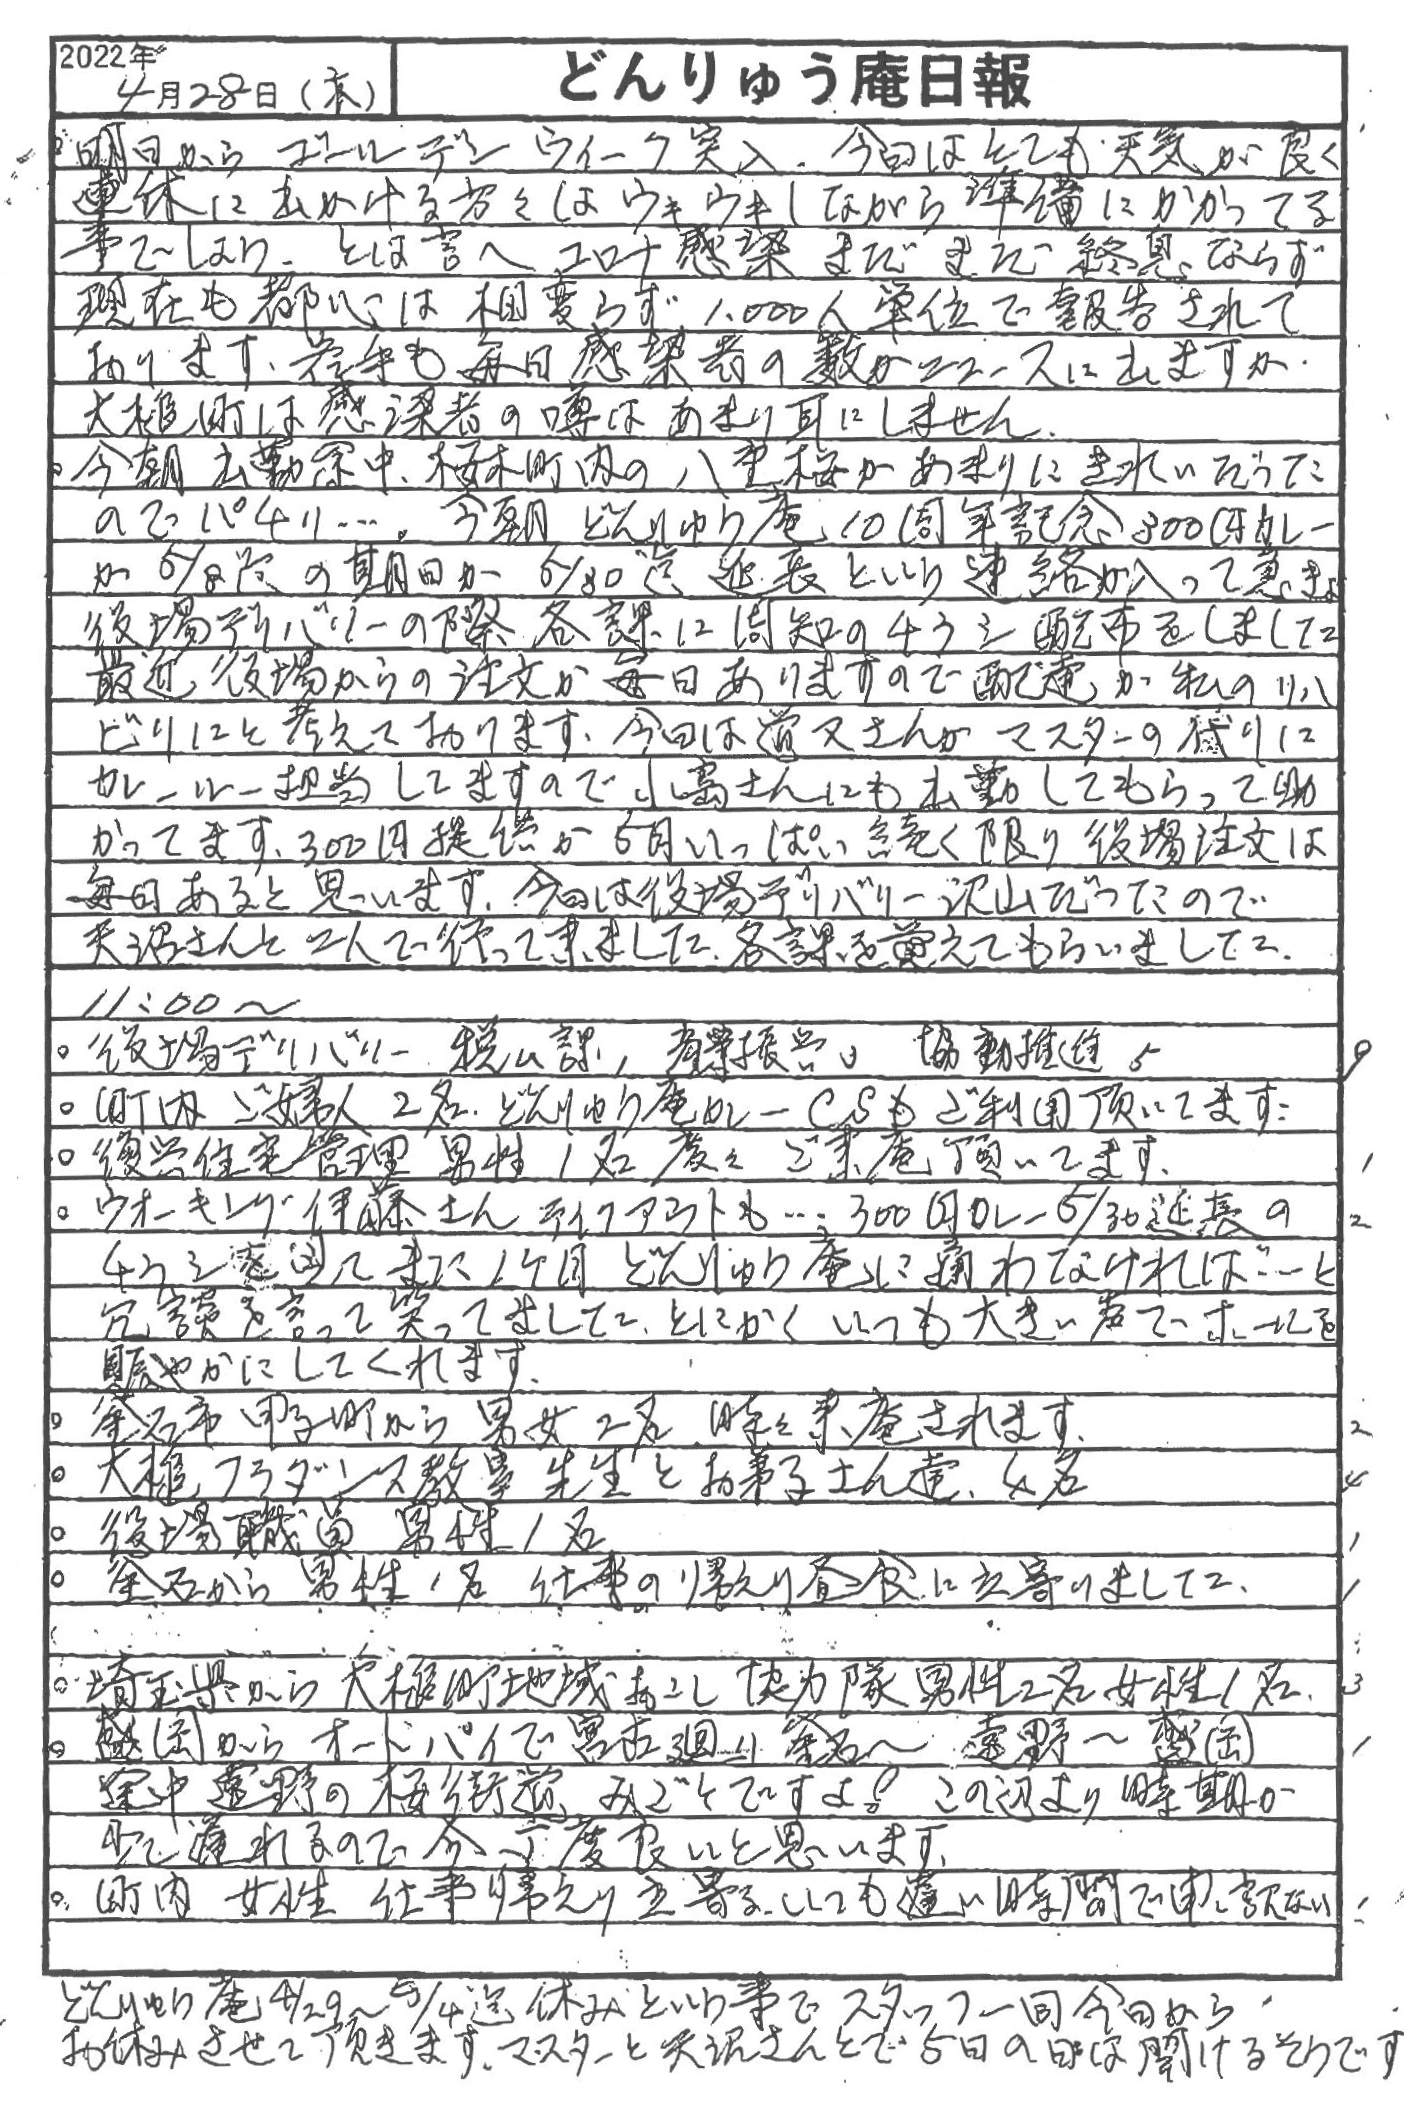 2022年
4月28日(木)
どんりゅう庵日報
。明日からゴールデンウィーク突入、今日はとても天気が良く
連休に出かける方々はウキウキしながら準備にかかってる
事でしょう。とは言へコロナ感染まだまだ終息ならず
現在も都心は相変らず1,000人単位で報告されて
おります、岩手も毎日感染者の数がニュースに出ますが
大槌町は感染者の噂はあまり耳にしません。
。今朝出勤途中、桜木町内の八重桜があまりにきれいだった
のでパチリ…。今朝どんりゅう庵10周年記念300円カレー
が5/8迄の期日が5/30迄延長という連絡が入って急きょ
役場デリバリーの際各課に周知のチラシ配布をしました
最近役場からの注文が毎日ありますので配達が私のリハ
ビリにと考えております、今日は道又さんがマスターの代りに
カレールー担当してますので小島さんにも出勤してもらって助
かってます、300円提供が5月いっぱい続く限り役場注文は
毎日あると思います、今日は役場デリバリー沢山だったので
天沼さんと二人で行って来ました、各課を覚えてもらいました。
11:00～
。役場デリバリー 税ム課1 産業振興3 協働推進5 9
。町内ご婦人2名、どんりゅう庵カレーCSもご利用頂いてます
。復興住宅管理 男性1名 度々ご来庵頂いてます、 1
。ウオーキング伊藤さん テイクアウトも…300円カレー5/30延長の 2
チラシを見てまた1ヶ月どんりゅう庵に通わなければ…と
冗談を言って笑ってました、とにかくいつも大きい声でホールを
賑やかにしてくれます、
。釜石市甲子町から男女2名、時々来庵されます、 2
。大槌フラダンス教室先生とお弟子さん達、4名 4
。役場職員 男性1名 1
。釜石から男性1名 仕事の帰えり昼食に立寄りました、 1
。埼玉県から大槌町地域おこし協力隊男性2名女性1名、 3
。盛岡からオートバイで宮古廻り釜石～遠野～盛岡 1
途中遠野の桜街道みごとですよ！この辺より時期が
少し遅れるので今丁度良いと思います、
。町内 女性 仕事帰えり立寄る、いつも遅い時間で申し訳ない 1
どんりゅう庵4/29～5/4迄休みという事でスタッフ一同今日から
お休みさせて頂きます、マスターと天沼さんとで5日の日は開けるそうです